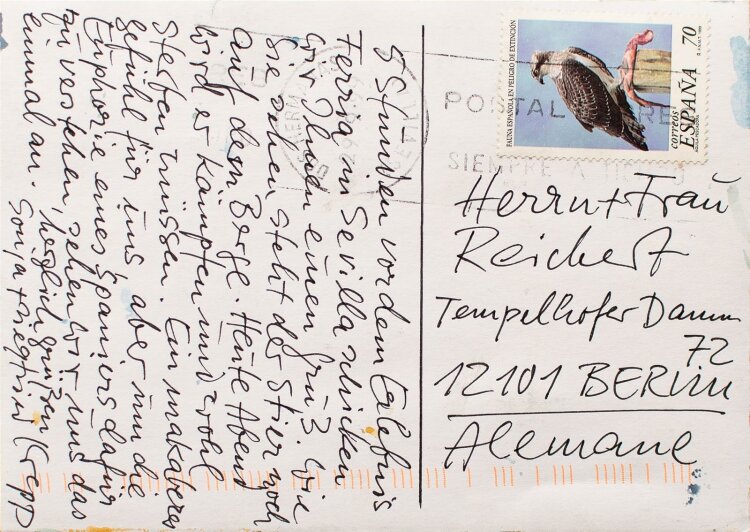 5 Stunden vor dem Erlebnis
Ferria in Sevilla schicken
wir Ihnen einen Gruß. Wie
Sie sehen steht der Stier noch
auf dem Berge. Heute Abend
wird er kämpfen und wohl
sterben müssen. Ein makabres
Gefühl für uns aber um die
Euphorie eines Spaniers dafür
zu verstehen, sehen wir uns das
einmal an. herzlich grüßen
Sonja + Siegfried Krepp
FAUNA ESPAÑOLA EN PELIGRO DE EXTINCIÓN
correos
ESPAÑA 70
POSTAL
SIEMPRE A
Herrn + Frau
Reichert
Tempelhofer Damm
72
12101 BERLIN
Alemane